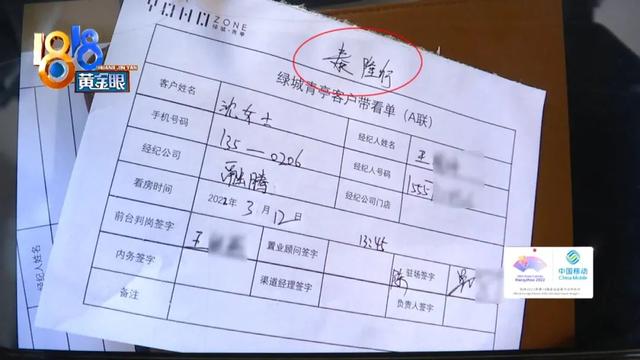 1818
黄金眼
HUANG JIN YAN
ZONE
绿城·青亭
泰隆行
绿城青亭客户带看单（A联）
客户姓名 沈女士 经纪人姓名 王
手机号码 135-0206 经纪人号码 1555
经纪公司 融腾 经纪公司门店
看房时间 2022年3月12日 13:45
前台判岗签字 王 置业顾问签字 陈 驻场签字
内务签字 渠道经理签字 负责人签字
备注
经纪人姓名
Hangzhou 2022
中国移动
China Mobile